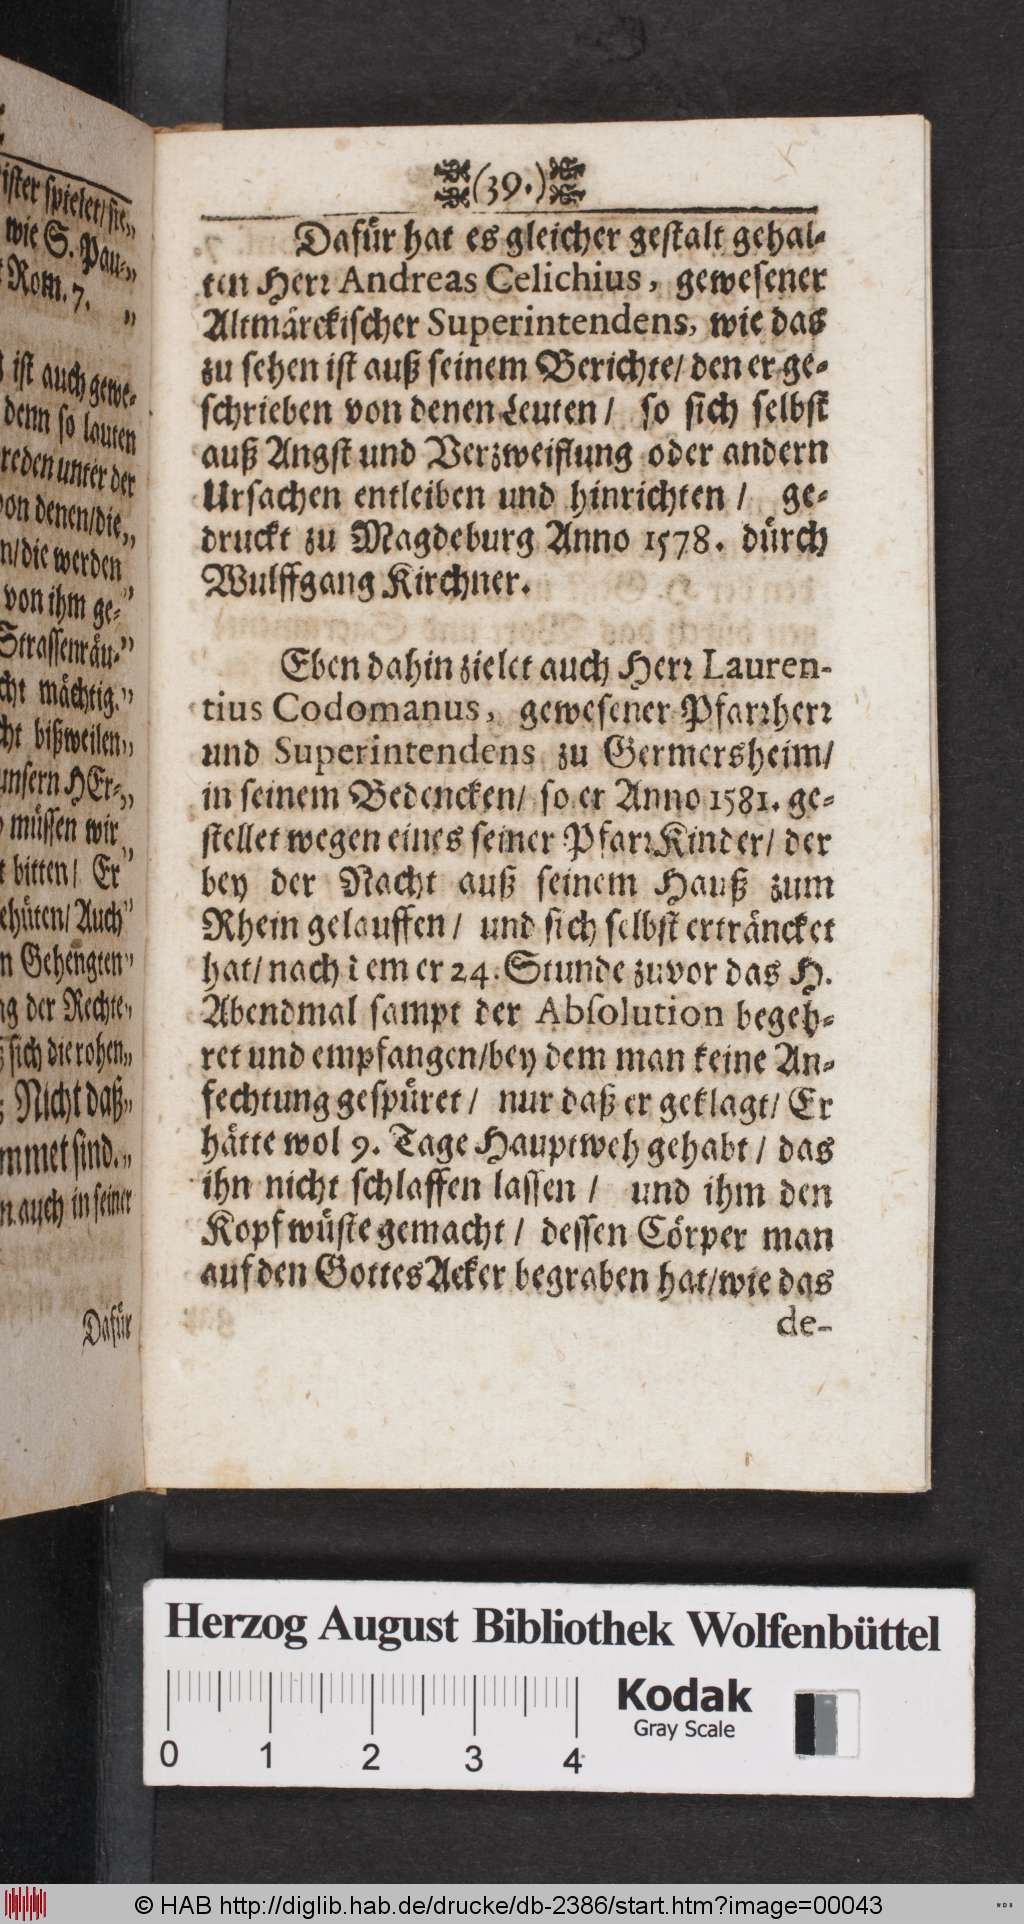 ister spielet/sie„
wie S. Pau-„
Rom. 7. „
ist auch gewe-
denn so lauten
reden unter der
von denen/die„
n/die werden
von ihm ge-„
Strassenräu-„
cht mächtig.„
ht bißweilen„
unsern HEr-„
müssen wir
t bitten/ Er„
ehüten/ Auch„
n Gehengten„
ng der Rechte„
sich die rohen„
Nicht daß„
mmet sind.„
n auch in seiner
Dafür
(39.)
Dafür hat es gleicher gestalt gehal-
ten Herr Andreas Celichius, gewesener
Altmärckischer Superintendens, wie das
zu sehen ist auß seinem Berichte/ den er ge-
schrieben von denen Leuten/ so sich selbst
auß Angst und Verzweiflung oder andern
Ursachen entleiben und hinrichten/ ge-
druckt zu Magdeburg Anno 1578. dürch
Wulffgang Kirchner.
Eben dahin zielet auch Herr Lauren-
tius Codomanus, gewesener Pfarrherr
und Superintendens zu Germersheim/
in seinem Bedencken/ so er Anno 1581. ge-
stellet wegen eines seiner PfarrKinder/ der
bey der Nacht auß seinem Hauß zum
Rhein gelauffen/ und sich selbst erträncket
hat/ nach dem er 24. Stunde zuvor das H.
Abendmal sampt der Absolution begeh-
ret und empfangen/bey dem man keine An-
fechtung gespüret/ nur daß er geklagt/ Er
hätte wol 9. Tage Hauptweh gehabt/ das
ihn nicht schlaffen lassen/ und ihm den
Kopf wüste gemacht/ dessen Cörper man
auf den GottesAcker begraben hat/wie das
de-
Herzog August Bibliothek Wolfenbüttel
Kodak
Gray Scale
0 1 2 3 4
© HAB http://diglib.hab.de/drucke/db-2386/start.htm?image=00043